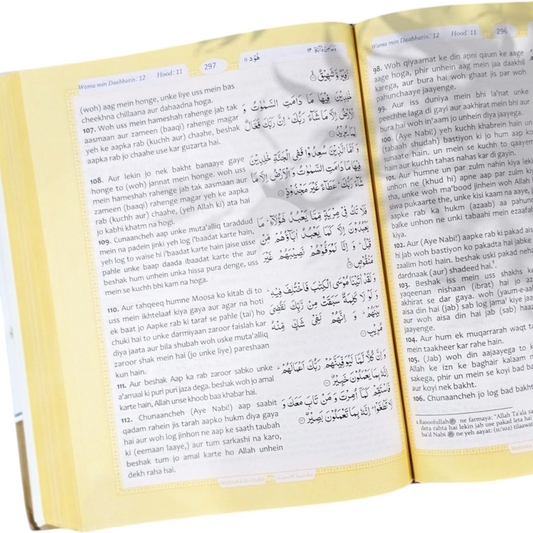 Wama min Daabbatin: 12 Hood: 11 297 هُوْد
(woh) aag mein honge, unke liye uss mein bas
cheekhna chillaana aur dahaadna hoga.
107. Woh uss mein hameshah rahenge jab tak
aasmaan aur zameen (baaqi) rahenge magar
yeh ke aapka rab (kuch aur) chaahe, beshak
aapka rab jo chaahe use kar guzarta hai.
108. Aur lekin jo nek bakht banaaye gaye
honge to (woh) jannat mein honge. woh uss
mein hameshah rahenge jab tak aasmaan aur
zameen (baaqi) rahenge magar yeh ke aapka
rab (kuch aur) chaahe. (yeh Allah ki) ata hai
jo kabhi khatm na hogi.
109. Chunaancheh aap unke muta'alliq taraddud
mein na padein jinki yeh log ('baadat karte hain.
yeh log to waise hi i'baadat karte hain jaise usse
pahle unke baap daada ibaadat karte the aur
beshak hum unhein unka hissa pura denge, uss
mein se kuch bhi kam na hoga.
110. Aur tahqeeq humne Moosa ko kitab di to
uss mein ikhtelaaf kiya gaya aur agar na hoti
ek baat jo Aapke rab ki taraf se pahle (tai) ho
chuki hai to unke darmiyaan zaroor faislah kar
diya jaata aur bila shubah woh uske muta'alliq
zaroor shak mein hai (jo unke liye) pareshaan
kun hain.
111. Aur beshak Aap ka rab zaroor sabko unke
a'amaal ki puri puri jaza dega. beshak woh jo amal
karte hain, Allah unse khoob baa khabar hai.
112. Chunaancheh (Aye Nabi!) aap saabit
qadam rahein jis tarah aapko hukm diya gaya
hai aur woh log jinhon ne aap ke saath taubah
ki (eemaan laaye,) aur tum sarkashi na karo,
beshak tum jo amal karte ho Allah unhein
dekh raha hai.
زَفِيْرٌ وَّشَهِيْقٌ
خٰلِدِيْنَ فِيْهَا مَا دَامَتِ السَّمٰوٰتُ وَ
الْاَرْضُ اِلَّا مَا شَآءَ رَبُّكَ ؕ اِنَّ رَبَّكَ فَعَّالٌ
لِّمَا يُرِيْدُ
وَ اَمَّا الَّذِيْنَ سُعِدُوْا فَفِي الْجَنَّةِ خٰلِدِيْنَ
فِيْهَا مَا دَامَتِ السَّمٰوٰتُ وَ الْاَرْضُ اِلَّا مَا
شَآءَ رَبُّكَ ؕ عَطَآءً غَيْرَ مَجْذُوْذٍ
فَلَا تَكُ فِيْ مِرْيَةٍ مِّمَّا يَعْبُدُ هٰٓؤُلَآءِ ؕ مَا
يَعْبُدُوْنَ اِلَّا كَمَا يَعْبُدُ اٰبَآؤُهُمْ مِّنْ
قَبْلُ ؕ وَ اِنَّا لَمُوَفُّوْهُمْ نَصِيْبَهُمْ غَيْرَ
مَنْقُوْصٍ
وَ لَقَدْ اٰتَيْنَا مُوْسَى الْكِتٰبَ فَاخْتُلِفَ فِيْهِ ؕ
وَ لَوْ لَا كَلِمَةٌ سَبَقَتْ مِنْ رَّبِّكَ لَقُضِيَ
بَيْنَهُمْ ؕ وَ اِنَّهُمْ لَفِيْ شَكٍّ مِّنْهُ
مُرِيْبٍ
وَ اِنَّ كُلًّا لَّمَّا لَيُوَفِّيَنَّهُمْ رَبُّكَ اَعْمَالَهُمْ ؕ
اِنَّهٗ بِمَا يَعْمَلُوْنَ خَبِيْرٌ
فَاسْتَقِمْ كَمَاۤ اُمِرْتَ وَ مَنْ تَابَ مَعَكَ وَ
لَا تَطْغَوْا ؕ اِنَّهٗ بِمَا تَعْمَلُوْنَ بَصِيْرٌ
Wama min Daabbatin: 12 Hood: 11 296
98. Woh qiyaamat ke din apni qaum ke aage
aage hoga, phir unhein aag mein jaa daakhil
karega, aur bura hai woh ghaat jis par woh
pahunchaaye jaayenge.
99. Aur iss duniya mei bhi la'nat unke
peechhe laga di gayi aur aakhirat mein bhi aur
bura hai woh in'aam jo unhein diya jaayega.
100. (Aye Nabi!) yeh kuchh khabrein hain un
(tabaah shudah) bastiyon ki jo hum aap ko
sunaate hain. un mein se kuchh to qaayem
hain aur kuchh tahas nahas kar di gayin.
101. Aur humne un par zulm nahin kiya lekin
unhon ne (khud hi) apne aap par zulm kiya
tha, unke woh ma'bood jinhein woh Allah ke
siwa pukaarte the, unke kisi kaam na aaye,
aapke rab ka hukm (azaab) aa pahuncha
balke unhon ne unki tabaahi mein ezaafah
kiya.
102. Aur (Aye Nabi!) aapke rab ki pakad aisi
hi hai jab woh bastiyon ko pakadta hai jabke
zaalim hoti hain. beshak uski pakad nehayat
dardnaak (aur) shadeed hai.
103. Beshak iss mein uss shakhs ke
yaqeenan nishaani (ibrat) hai jo azaab
akhirat se dar gaya. woh (yaum-e-aakhirat)
aisa din hai (jab) sab log jama' kiye jaayenge
aur woh aisa din hai (jab sab) haazir
jaayenge.
104. Aur hum ek muqarrarah waqt tak
mein taakheer kar rahe hain.
105. (Jab) woh din aajaayega to koi
Allah ke izn ke baghair kalaam na
sakega, phir un mein se koyi bad
aur koyi nek bakht.
106. Chunaancheh jo log bad bakht